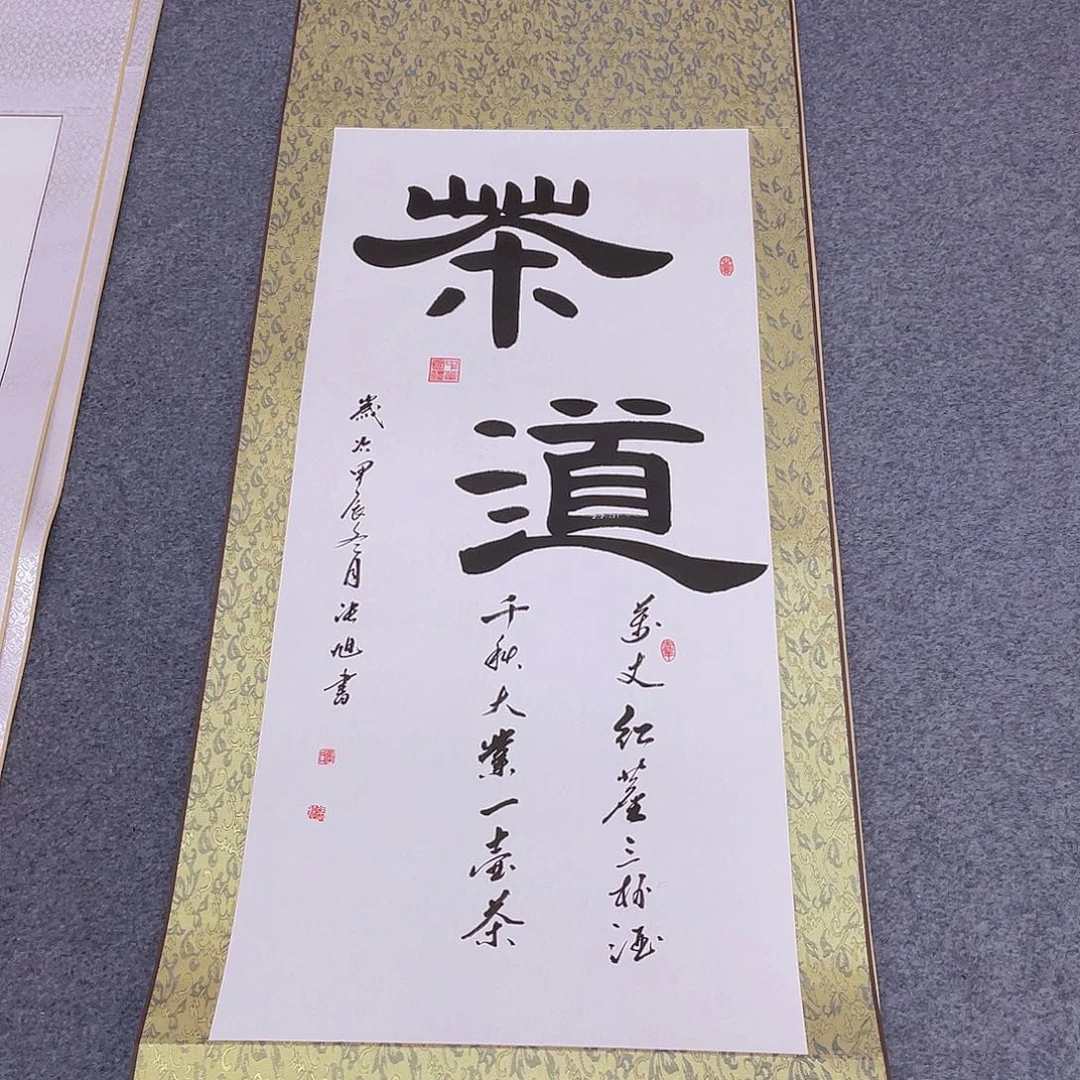 茶道
萬丈紅塵三杯酒
千秋大業一壺茶
歲次甲辰冬月 旭書